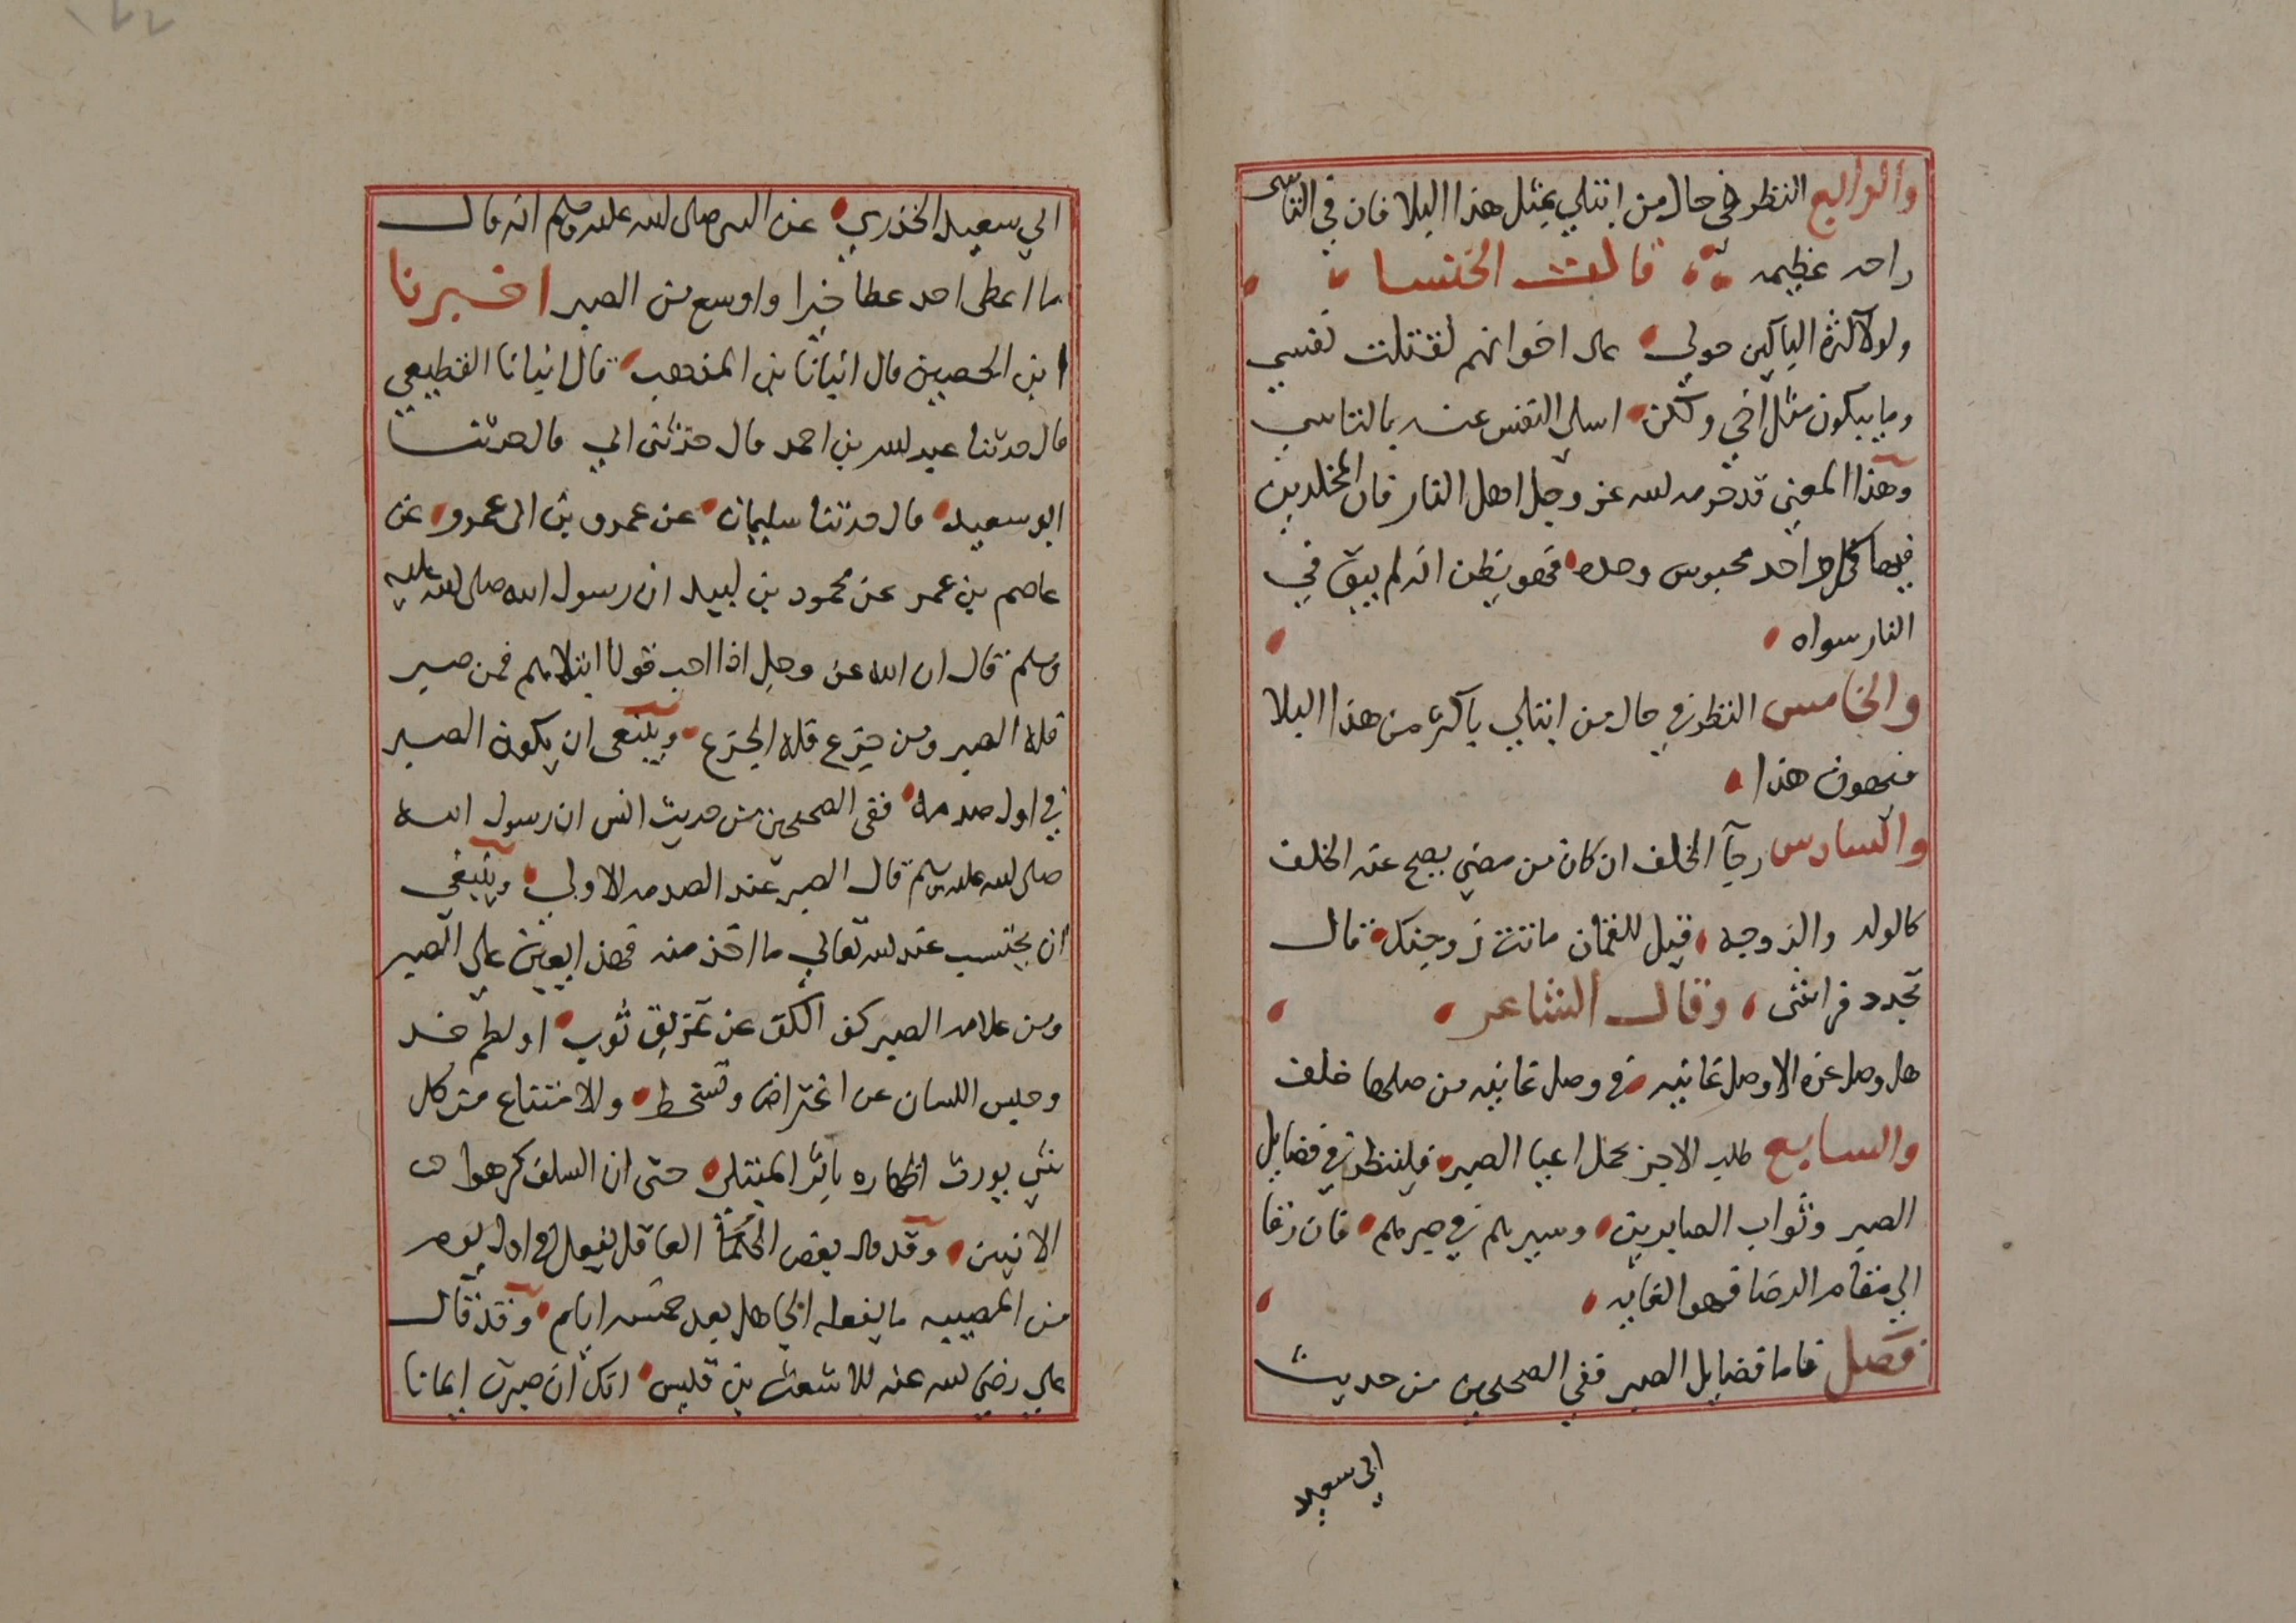 والرابع النظر في حال من ابتلي بمثل هذا البلا فان في التاسي
راحه عظيمه قالت الخنسا
ولولا كثرة الباكين حولي على اخوانهم لقتلت نفسي
وما يبكون مثل اخي ولكن اسلي النفس عنه بالتاسي
وهذا المعنى قد حرمه الله عز وجل اهل النار فان المخلدين
فيها كل واحد محبوس وحده فهو يظن انه لم يبق في
النار سواه
والخامس النظر في حال من ابتلي باكثر من هذا البلا
فيهون هذا
والسادس رجآ الخلف ان كان من مضي يصح عنه الخلف
كالولد والزوجه قيل للقمان ماتت زوجتك قال
تجدد فراشى وقال الشاعر
هل وصل عزه الا وصل غانيه في وصل غانيه من صلها خلف
والسابع طلب الاجر بحمل اعبا الصبر فلينظر في فضايل
الصبر وثواب الصابرين وسيرهم في صبرهم فان رقا
الي مقام الرضا فهو الغايه
فصل فاما فضايل الصبر ففي الصحيحين من حديث
ابي سعيد
ابي سعيد الخدري عن النبي صلى الله عليه وسلم انه قال
ما اعطى احد عطا خيرا واوسع من الصبر اخبرنا
ابن الحصين قال انبانا بن المذهب قال انبانا القطيعي
قال حدثنا عبد الله بن احمد قال حدثنى ابي قال حدثنا
ابو سعيد قال حدثنا سليمان عن عمرو بن ابى عمرو عن
عاصم بن عمر عن محمود بن لبيد ان رسول الله صلى الله عليه
وسلم قال ان الله عز وجل اذا احب قوما ابتلاهم فمن صبر
فله الصبر ومن جزع فله الجزع وينبغى ان يكون الصبر
في اول صدمه ففي الصحيحين من حديث انس ان رسول الله
صلى الله عليه وسلم قال الصبر عند الصدمه الاولي وينبغي
ان يحتسب عند الله تعالي ما اخذ منه فهذا يعين على الصبر
ومن علامه الصبر كف الكف عن تمزيق ثوب او لطم خد
وحبس اللسان عن اعتراض وتسخط والامتناع من كل
شي يورث اظهاره باثر المبتلى حتى ان السلف كرهوا
الانين وقد قال بعض الحكمآ العاقل يفعل في اول يوم
من المصيبه ما يفعله الجاهل بعد خمسه ايام وقد قال
علي رضي الله عنه للاشعث بن قيس انك ان صبرت ايمانا